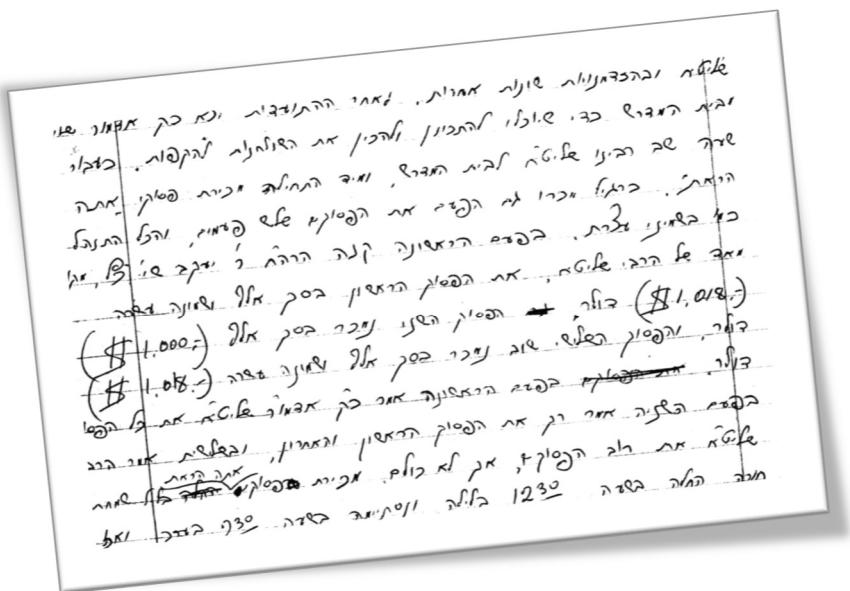 שליט"א ובהזדמנויות שונות אחרות. לאחר ההתועדות יצא כק אדמור שלי
מבית המדרש כדי שיוכלו להתכונן ולהכין את השולחנות להקפות. כעבור
שעה שב רבינו שליט"א לבית המדרש, ומיד התחילה מכירת פסוקי "אתה
הראת". כרגיל מכרו גם הפעם את הפסוקים שלש פעמים, והכל התנהל
כמו בשמיני עצרת. בפעם הראשונה קנה הרה"ח ר' יעקב שי'
מאד של הרבי שליט"א, את הפסוק הראשון בסך אלף ושמונה עשרה
($ 1,018.-) דולר הפסוק השני נמכר בסך אלף ($ 1,000.-)
דולר, והפסוק השלישי שוב נמכר בסך אלף ושמונה עשרה ($ 1,018.-)
דולר. בפעם הראשונה אמר כ"ק אדמו"ר שליט"א את כל הפסו
בפעם השניה אמר רק את הפסוק הראשון והאחרון, ובשלישית אמר הרב
שליט"א את רוב הפסוקים, אך לא כולם. מכירת פסוקי אתה הראת שמחת
תורה החלה בשעה 12:30 בלילה ונסתיימה בשעה בערך ואז